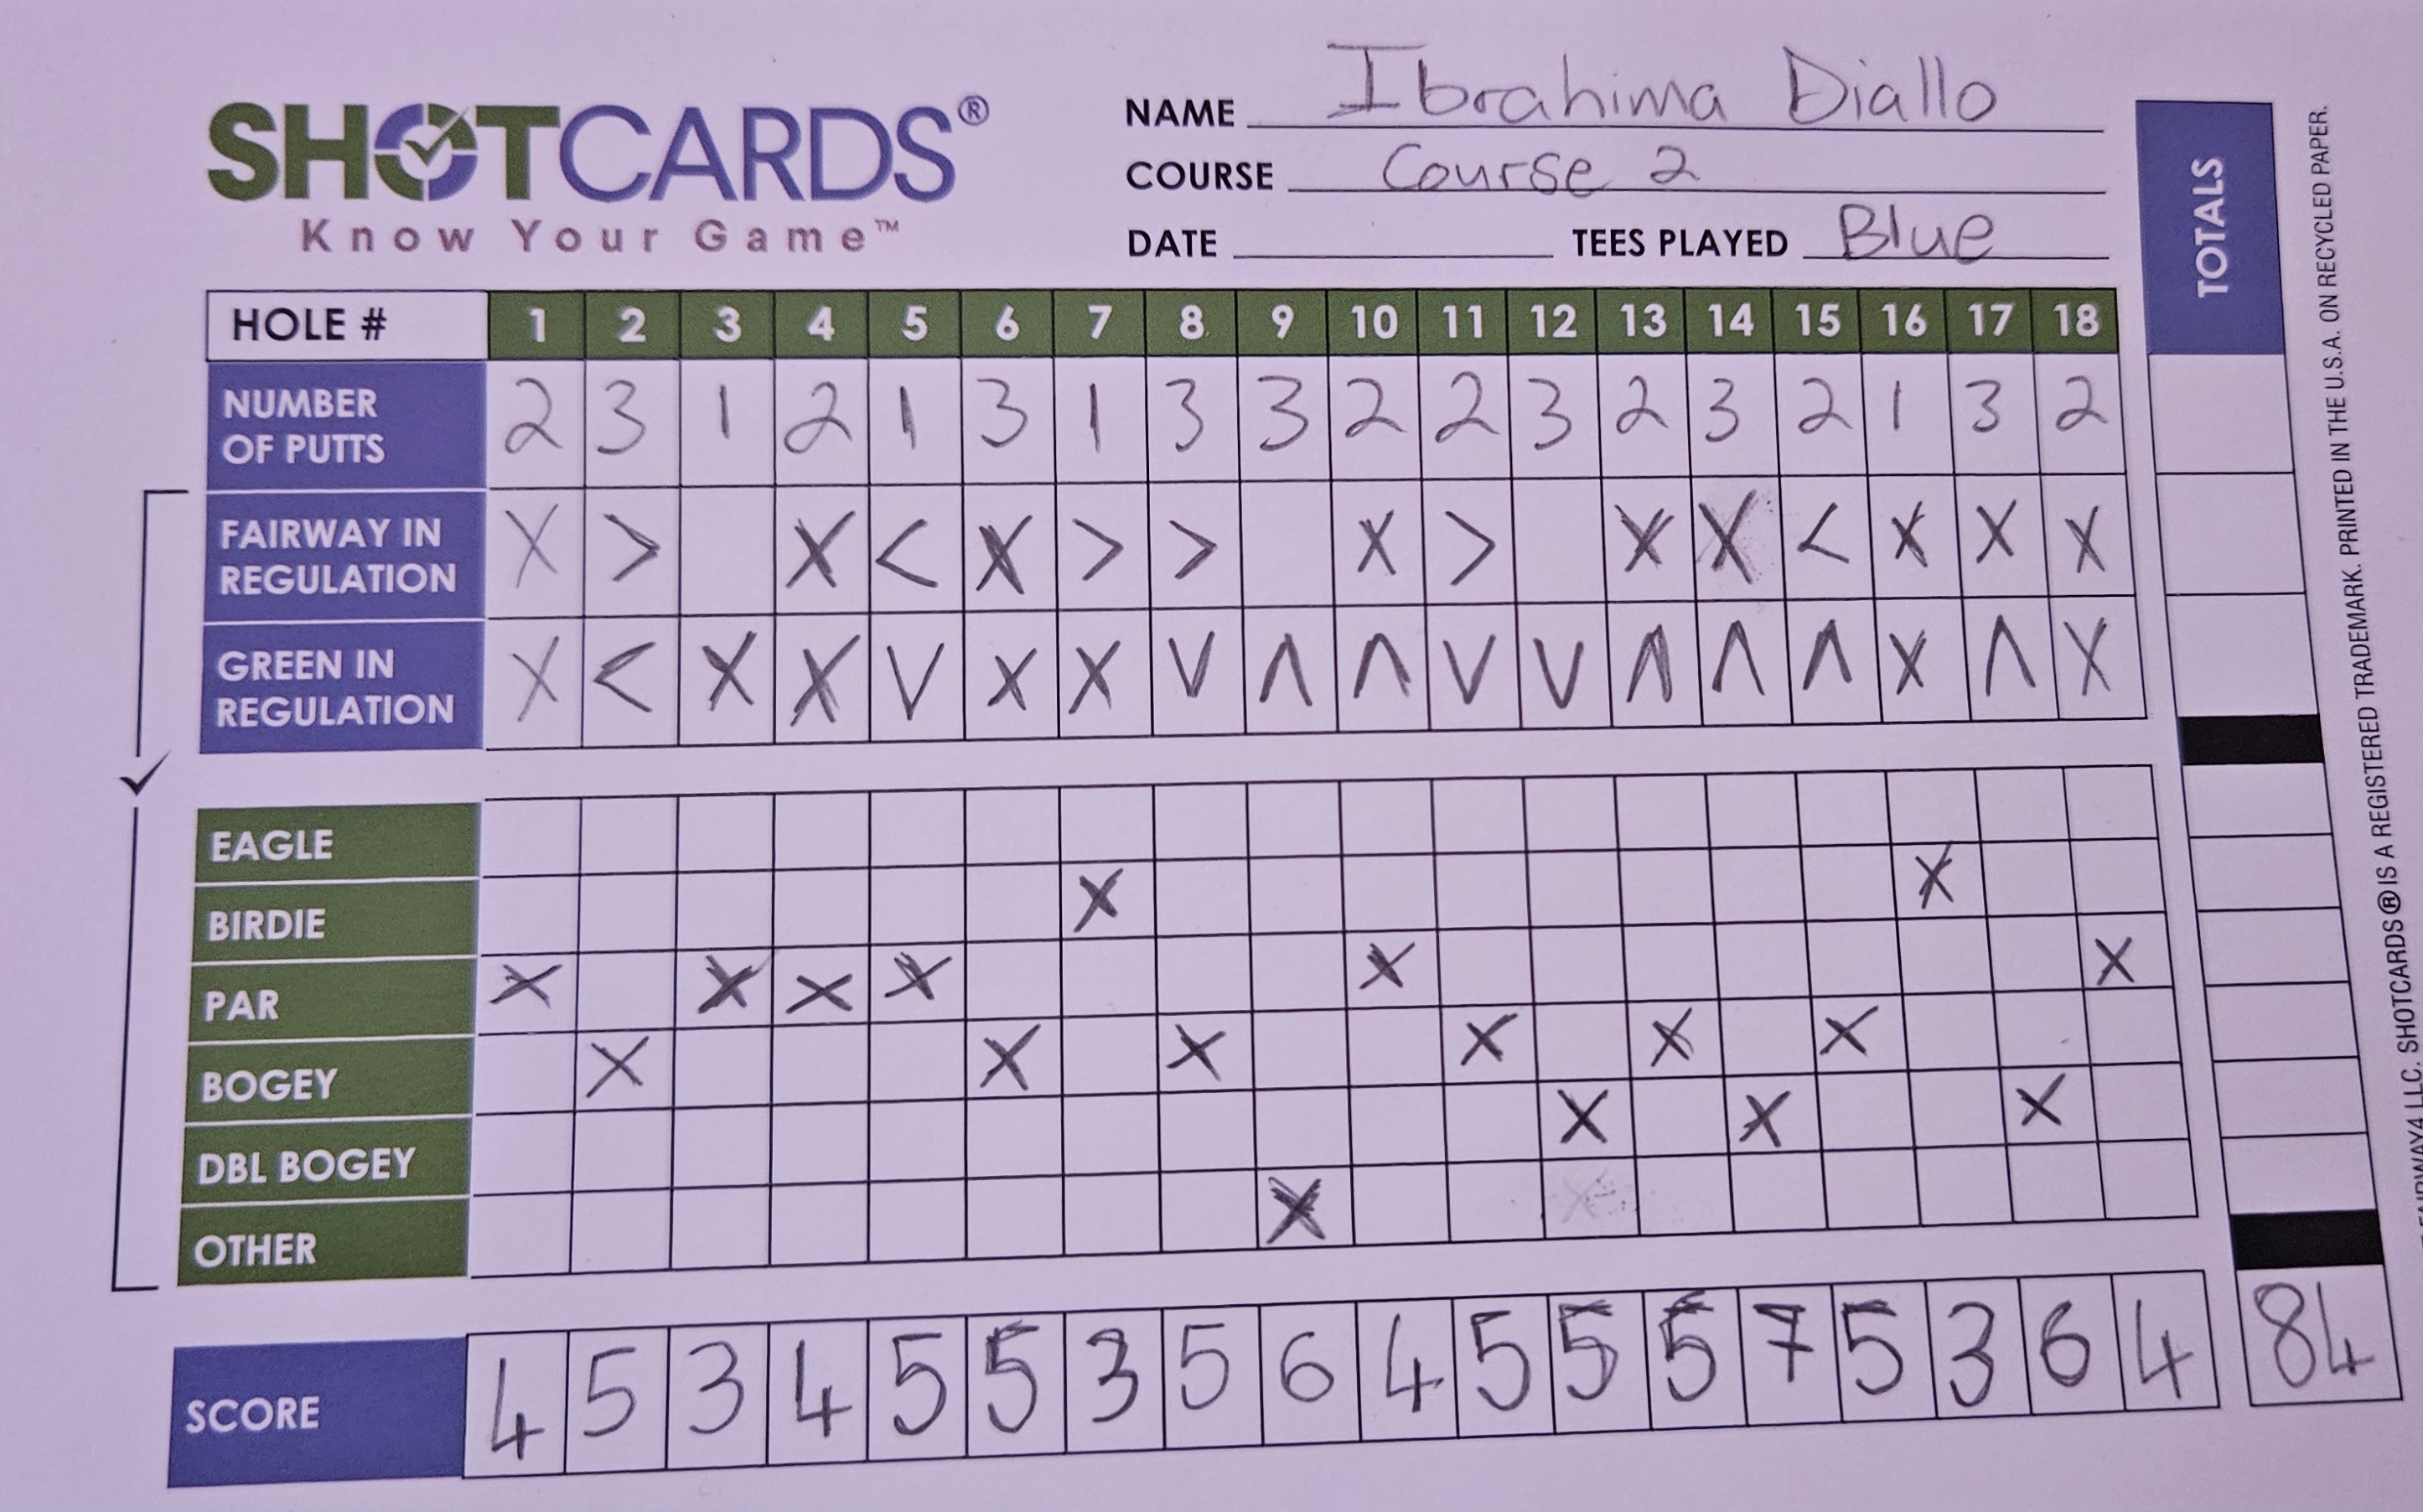 SHOTCARDS®
Know Your Game™
NAME Ibrahima Diallo
COURSE Course 2
DATE TEES PLAYED Blue
TOTALS
HOLE # 1 2 3 4 5 6 7 8 9 10 11 12 13 14 15 16 17 18
NUMBER OF PUTTS 2 3 1 2 1 3 1 3 3 2 2 3 2 3 2 1 3 2
FAIRWAY IN REGULATION X > X < X > > X > X X < X X X
GREEN IN REGULATION X < X X V X X V Λ Λ V V Λ Λ Λ X Λ X
✓
EAGLE
BIRDIE X X
PAR X X X X X X
BOGEY X X X X X X
DBL BOGEY X X X
OTHER X
SCORE 4 5 3 4 5 5 3 5 6 4 5 5 5 7 5 3 6 4 84
LLC. SHOTCARDS® IS A REGISTERED TRADEMARK. PRINTED IN THE U.S.A. ON RECYCLED PAPER.